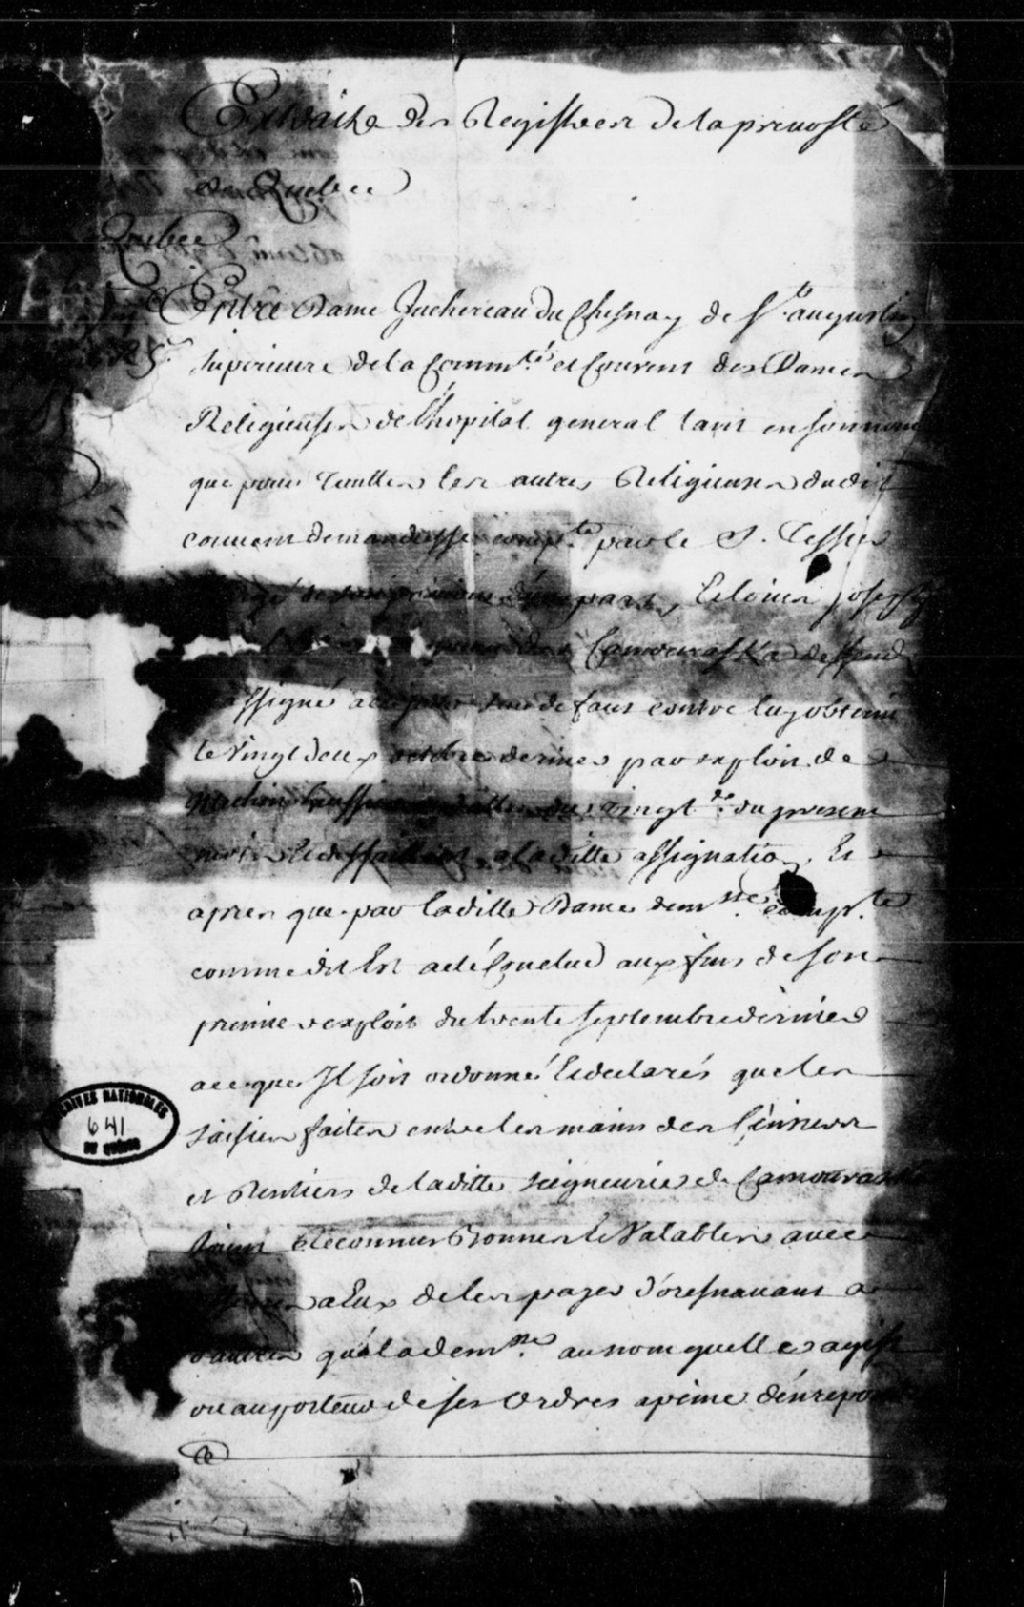 Extrait des Registres de la prevosté
de Quebec
Quebec
Entre Dame Juchereau du Chesnay de St. augustin
superieure de la Commté. et Couvent des Dames
Religieuses de l'hopital general tant en son nom
que pour touttes les autres Religieuses dudit
couvent demanderesse compte. par le S. Tessier
d'une part, Et louis Joseph
Camouraska deffend
assigné defaut contre luy obtenu
le vingt deux octobre dernier par exploit de
huissier du vingt du present
mois Et deffaillant a laditte assignation, Et
apres que par laditte Dame demsse. compte
comme dit Est a eté conclud aux fins de son
premier exploit du trente septembre dernier
a ce que Il soit ordonné Et declarés que les
saisies faites entre les mains des Censives
et Rentiers de laditte seigneurie de Camouraska
soient Reconnues Bonnes Et Valables avec
a Eux de les payer d'oresnavant a
d'autres qu'a la demsse. au nom quelle agist
ou au porteur de ses Ordres a peine d'en repondre